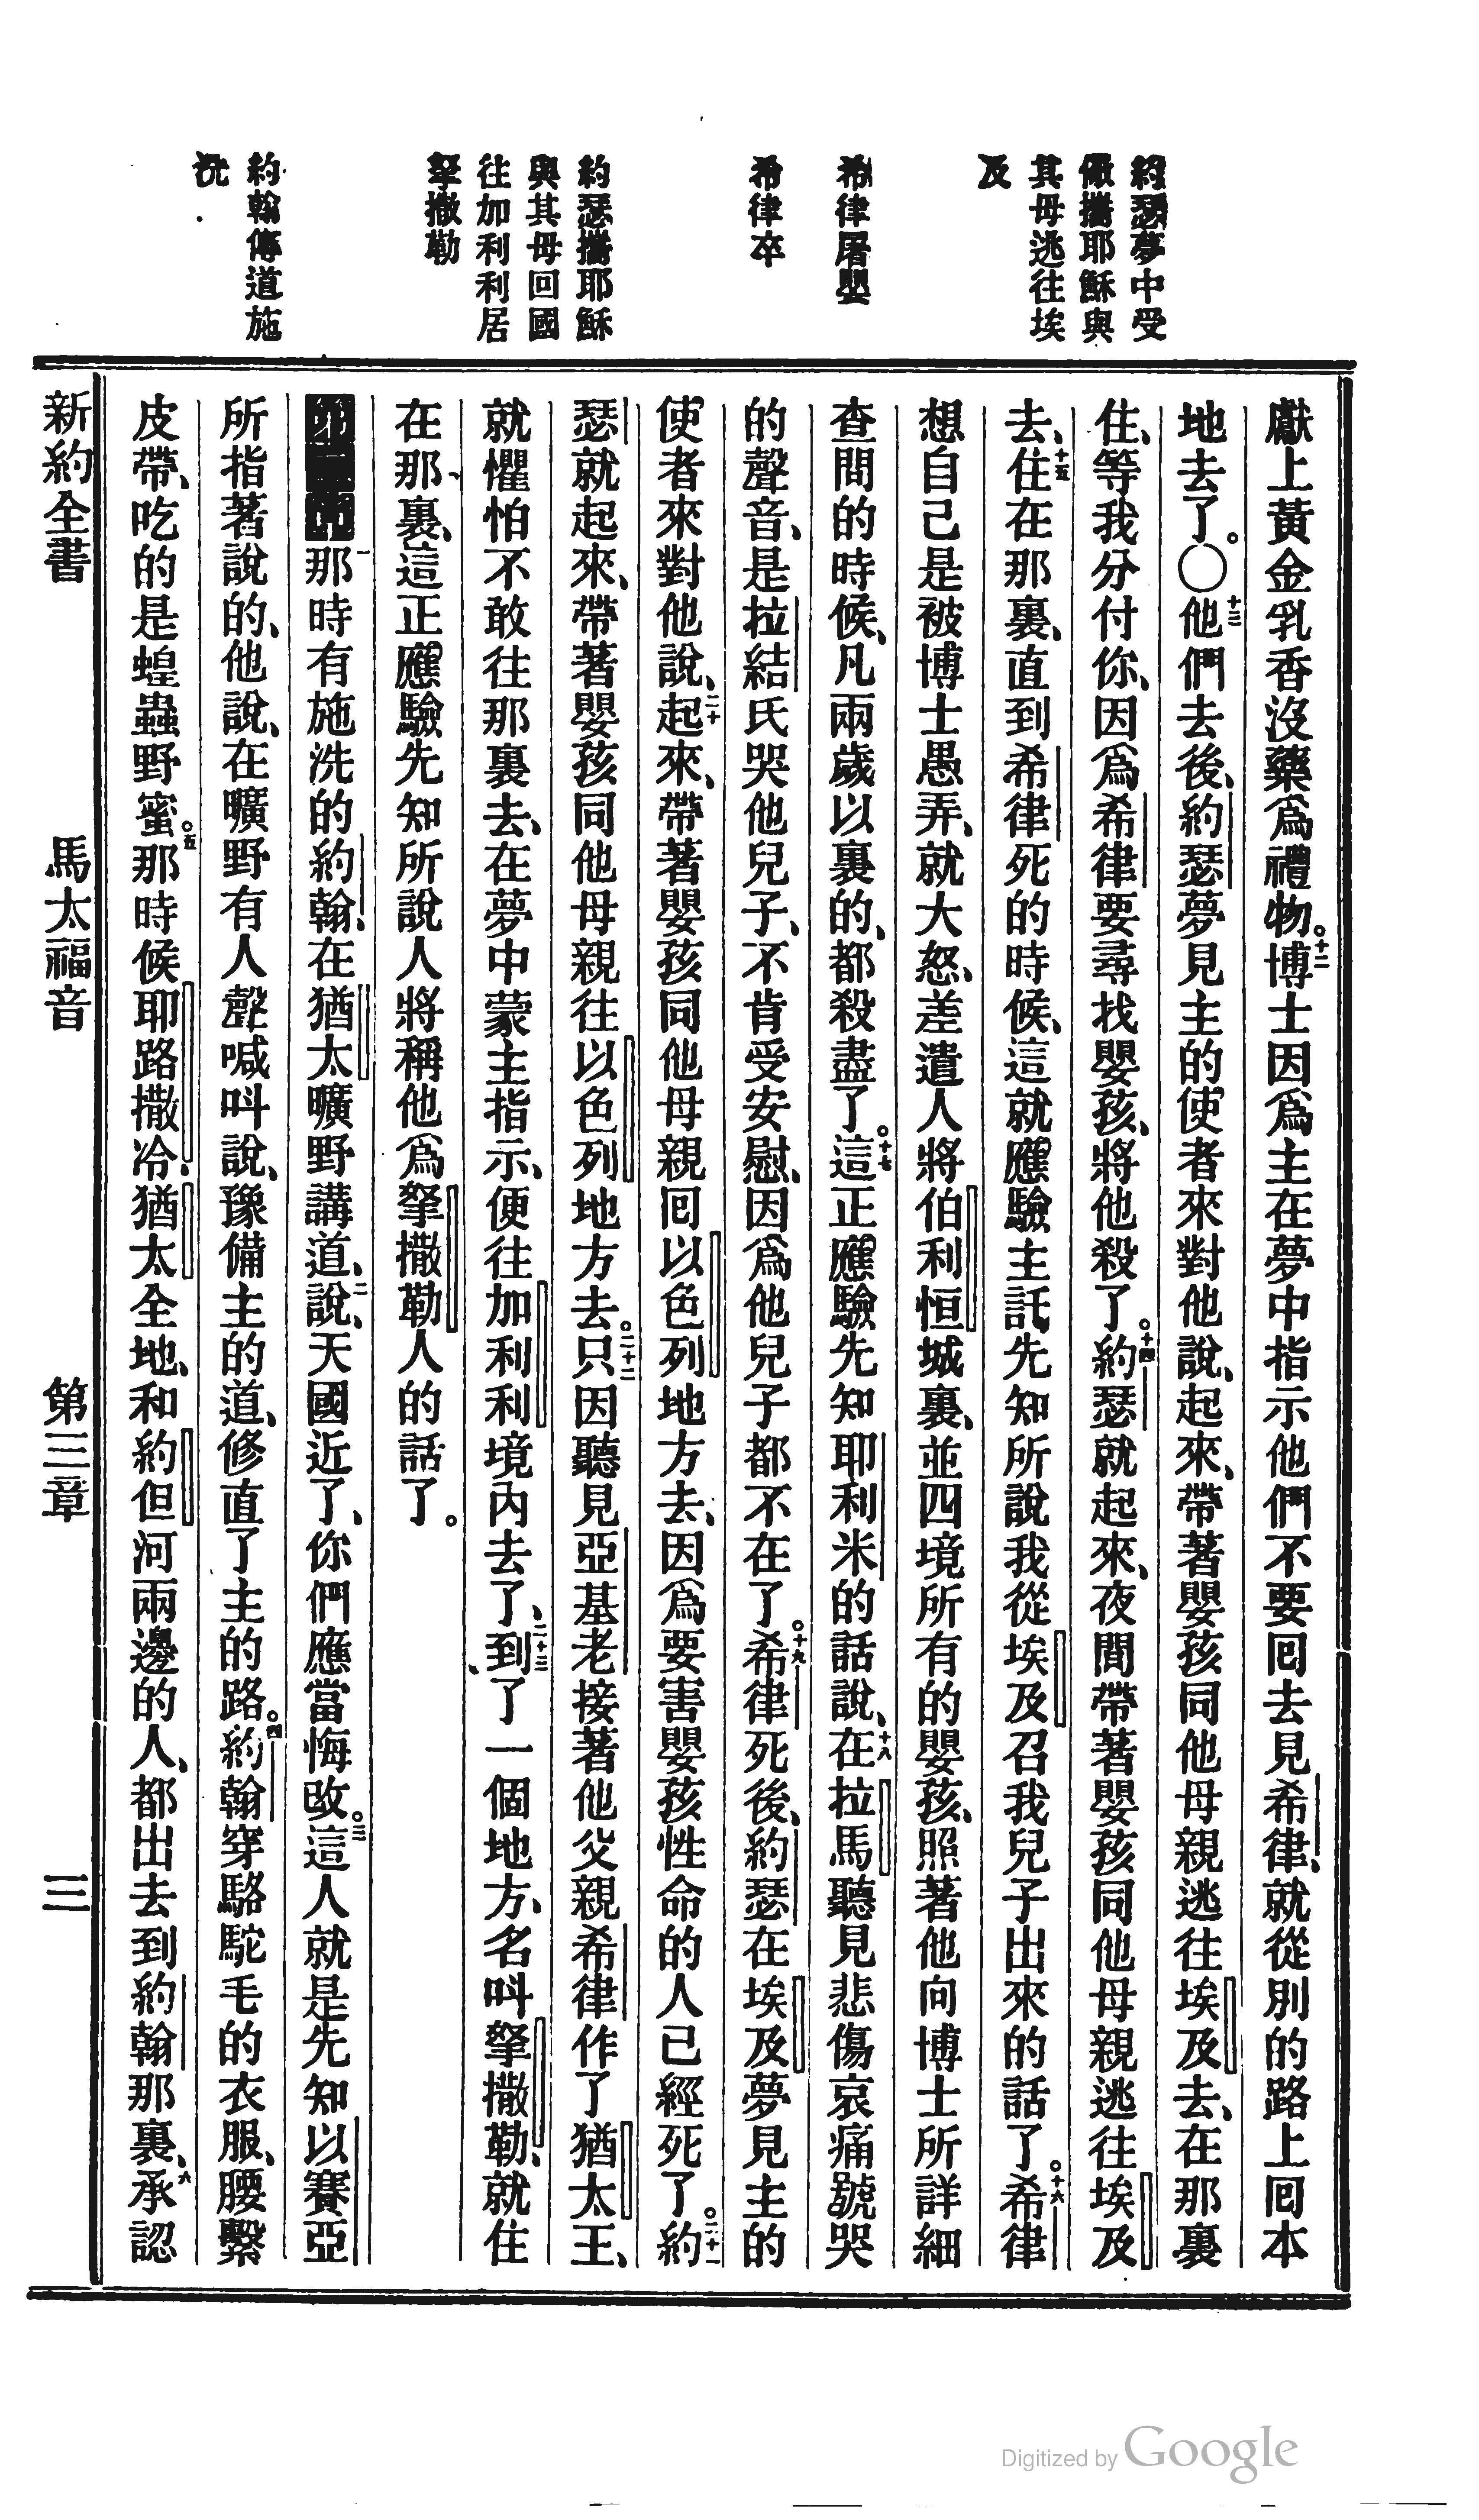 約瑟夢中受
儆攜耶穌與
其母逃往埃
及
希律屠嬰
希律卒
約瑟攜耶穌
與其母回國
往加利利居
拏撒勒
約翰傳道施
洗
獻上黃金乳香沒藥爲禮物。十二博士因爲主在夢中指示他們不要囘去見希律、就從別的路上囘本
地去了。○十三他們去後、約瑟夢見主的使者來對他說、起來、帶著嬰孩同他母親逃往埃及去、在那裏
住、等我分付你、因爲希律要尋找嬰孩、將他殺了。十四約瑟就起來、夜間帶著嬰孩同他母親逃往埃及
去、十五住在那裏、直到希律死的時候、這就應驗主託先知所說我從埃及召我兒子出來的話了。十六希律
想自己是被博士愚弄、就大怒、差遣人將伯利恒城裏、並四境所有的嬰孩、照著他向博士所詳細
查問的時候、凡兩歲以裏的、都殺盡了。十七這正應驗先知耶利米的話說、十八在拉馬聽見悲傷哀痛號哭
的聲音、是拉結氏哭他兒子、不肯受安慰、因爲他兒子都不在了。十九希律死後、約瑟在埃及夢見主的
使者來對他說、二十起來、帶著嬰孩同他母親囘以色列地方去、因爲要害嬰孩性命的人已經死了。二十一約
瑟就起來、帶著嬰孩同他母親往以色列地方去。二十二只因聽見亞基老接著他父親希律作了猶太王、
就懼怕不敢往那裏去、在夢中蒙主指示、便往加利利境內去了、二十三到了一個地方、名叫拏撒勒、就住
在那裏、這正應驗先知所說人將稱他爲拏撒勒人的話了。
一那時有施洗的約翰、在猶太曠野講道、二說、天國近了、你們應當悔改。三這人就是先知以賽亞
所指著說的、他說、在曠野有人聲喊叫說、豫備主的道、修直了主的路。四約翰穿駱駝毛的衣服、腰繫
皮帶、吃的是蝗蟲野蜜。五那時候耶路撒冷、猶太全地、和約但河兩邊的人、都出去到約翰那裏、六承認
新約全書　馬太福音　第三章　三
Digitized by Google